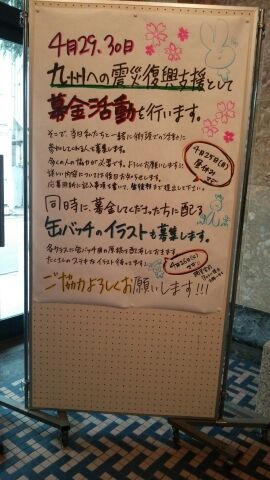 4月29.30日
九州への震災復興支援として
募金活動を行います。
そこで、当日私たちと一緒に街頭での活動に
参加してくれる人を募集します。
多くの人の協力が必要です。よろしくお願いします!
詳しい内容については後日お知らせします。
応募用紙に記入事項を書いて、生徒会まで提出して下さい。
4月25日(月)
昼休みまで
同時に、募金してくださった方に配る
缶バッチのイラストも募集します。
各クラスに缶バッチ用の原稿を配布しております。
たくさんのステキなイラスト待ってます!
4月26日(火)
まで
ご協力よろしくお願いします!!!